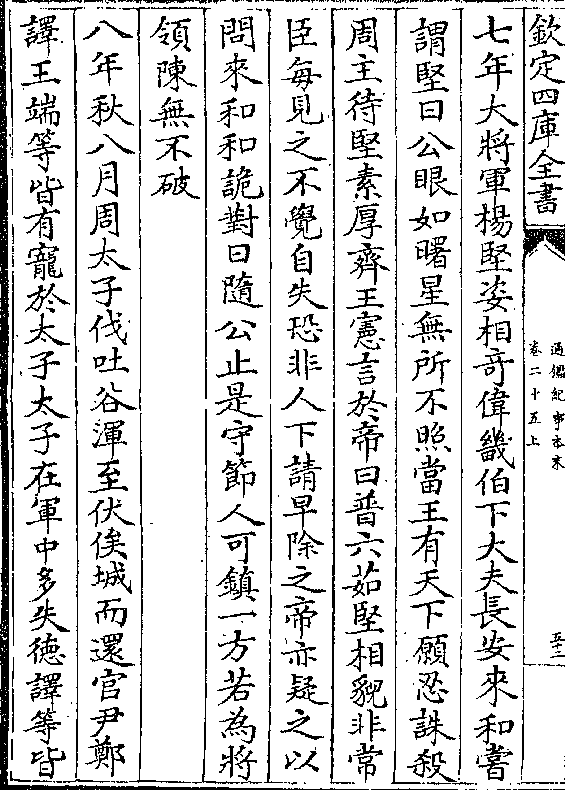 欽定四庫全書
通鑑紀事本末
卷二十五上
五十二
七年大將軍楊堅姿相竒偉畿伯下大夫長安來和嘗
謂堅曰公眼如曙星無所不照當王有天下願忍誅殺
周主待堅素厚齊王憲言於帝曰普六茹堅相貌非常
臣每見之不覺自失恐非人下請早除之帝亦疑之以
問來和和詭對曰隨公止是守節人可鎮一方若為將
領陳無不破
八年秋八月周太子伐吐谷渾至伏俟城而還官尹鄭
譯王端等皆有寵於太子太子在軍中多失徳譯等皆